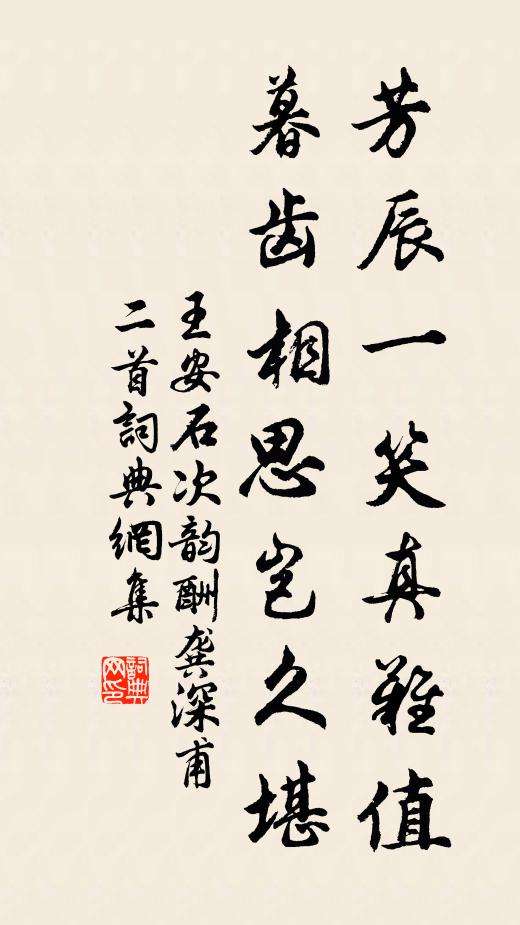 芳辰一笑真難值
暮齿相思岂久堪
王安石次韵酬龚深甫
二首詞典網集
詞典网印